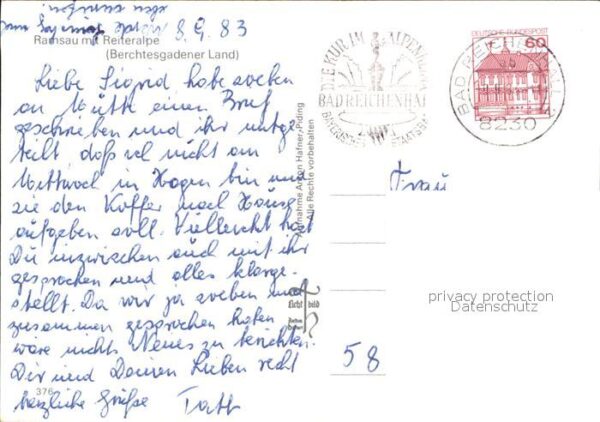 8.9.83
Ramsau mit Reiteralpe
(Berchtesgadener Land)
Liebe Sigrid habe soeben
an Mutti einen Brief
geschrieben und ihr mitge-
teilt, daß ich nicht am
Mittwoch in Hagen bin und
sie den Koffer nach Hause
aufgeben soll. Vielleicht hast
Du inzwischen auch mit ihr
gesprochen und alles klarge-
stellt. Da wir ja soeben
zusammen gesprochen haben
wäre nichts Neues zu berichten.
Dir und Deinen Lieben recht
herzliche Grüße
376
Aufnahme Anton Hafner, Piding
Alle Rechte vorbehalten
licht bild
DIE KUR IM ALPENKLIMA
BAD REICHENHALL
BAYERISCHES STAATSBAD
DEUTSCHE BUNDESPOST
60
BAD REICHENHALL 1
8230
Frau
privacy protection
Datenschutz
58